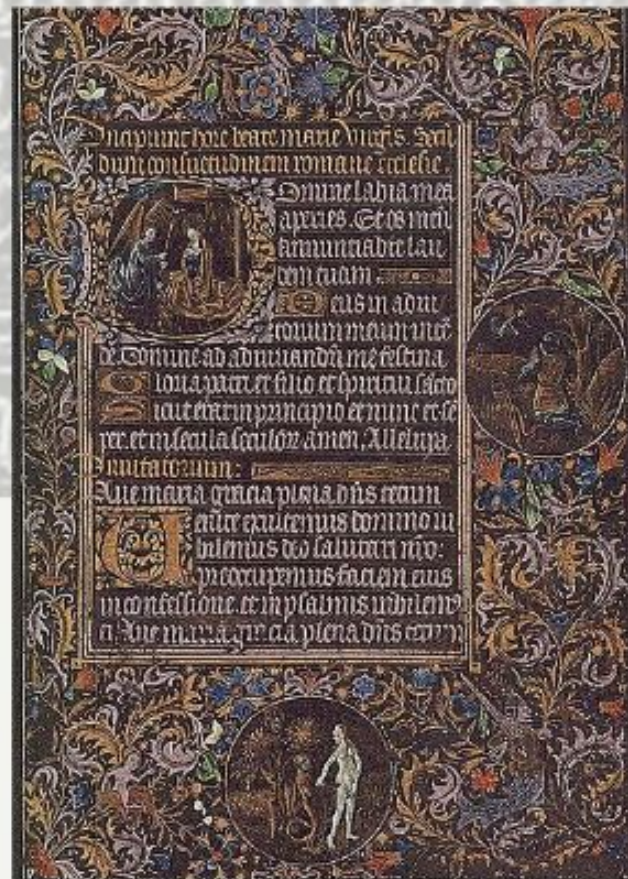 Incipiunt hore beate marie virgis. Secū
dum consuetudinem romane ecclesie
Domine labia mea
aperies. Et os meū
annunciabit lau
dem tuam
Deus in adiu
torium meum inten
de. Domine ad adiuuandū me festina
Gloria patri et filio et spiritui sācto
Sicut erat in principio et nunc et sē
per et in secula seculoꝝ amen. Alleluya
Inuitatorium:
Aue maria gracia plena dn̄s tecum
Uenite exultemus domino iu
bilemus deo salutari nr̄o:
preocupemus faciem eius
in confessione et in psalmis iubilem9
ei. Aue maria gracia plena dn̄s tecum